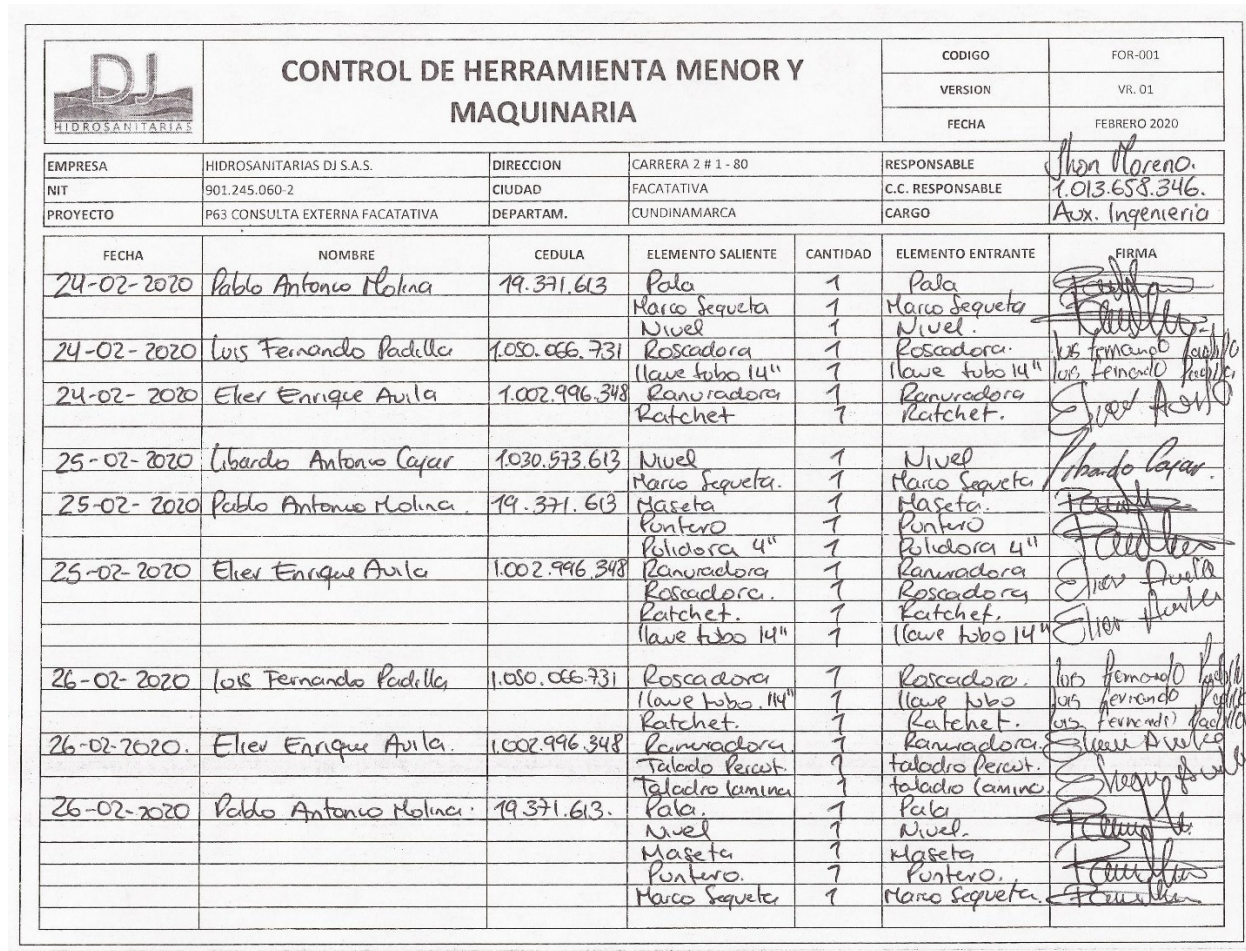 DJ
HIDROSANITARIAS
CONTROL DE HERRAMIENTA MENOR Y
MAQUINARIA
CODIGO FOR-001
VERSION VR. 01
FECHA FEBRERO 2020
EMPRESA HIDROSANITARIAS DJ S.A.S. DIRECCION CARRERA 2 # 1 - 80 RESPONSABLE Jhon Moreno.
NIT 901.245.060-2 CIUDAD FACATATIVA C.C. RESPONSABLE 1.013.658.346.
PROYECTO P63 CONSULTA EXTERNA FACATATIVA DEPARTAM. CUNDINAMARCA CARGO Aux. Ingenieria
FECHA NOMBRE CEDULA ELEMENTO SALIENTE CANTIDAD ELEMENTO ENTRANTE FIRMA
24-02-2020 Pablo Antonio Molina 19.371.613 Pala 1 Pala
Marco Segueta 1 Marco Segueta
Nivel 1 Nivel.
24-02-2020 Luis Fernando Padilla 1.050.066.731 Roscadora 1 Roscadora. luis fernando Padilla
llave tubo 14" 1 llave tubo 14" luis fernando Padilla
24-02-2020 Elier Enrique Avila 1.002.996.348 Ranuradora 1 Ranuradora
Ratchet 1 Ratchet. Elier Avila
25-02-2020 Libardo Antonio Cajar 1.030.573.613 Nivel 1 Nivel Libardo Cajar.
Marco Segueta. 1 Marco Segueta
25-02-2020 Pablo Antonio Molina. 19.371.613 Maseta 1 Maseta.
Puntero 1 Puntero
Pulidora 4" 1 Pulidora 4"
25-02-2020 Elier Enrique Avila 1.002.996.348 Ranuradora 1 Ranuradora Elier Avila
Roscadora. 1 Roscadora
Ratchet. 1 Ratchet. Elier Avila
llave tubo 14" 1 llave tubo 14"
26-02-2020 Luis Fernando Padilla 1.050.066.731 Roscadora 1 Roscadora. luis fernando Padilla
llave tubo. 114" 1 llave tubo luis fernando Padilla
Ratchet. 1 Ratchet. luis fernando Padilla
26-02-2020. Elier Enrique Avila. 1.002.996.348 Ranuradora. 1 Ranuradora.
Talado Percut. 1 taladro Percut.
Taladro lamina 1 taladro lamina
26-02-2020 Pablo Antonio Molina. 19.371.613. Pala. 1 Pala
Nivel 1 Nivel.
Maseta 1 Maseta
Puntero. 1 Puntero.
Marco Segueta 1 Marco Segueta.